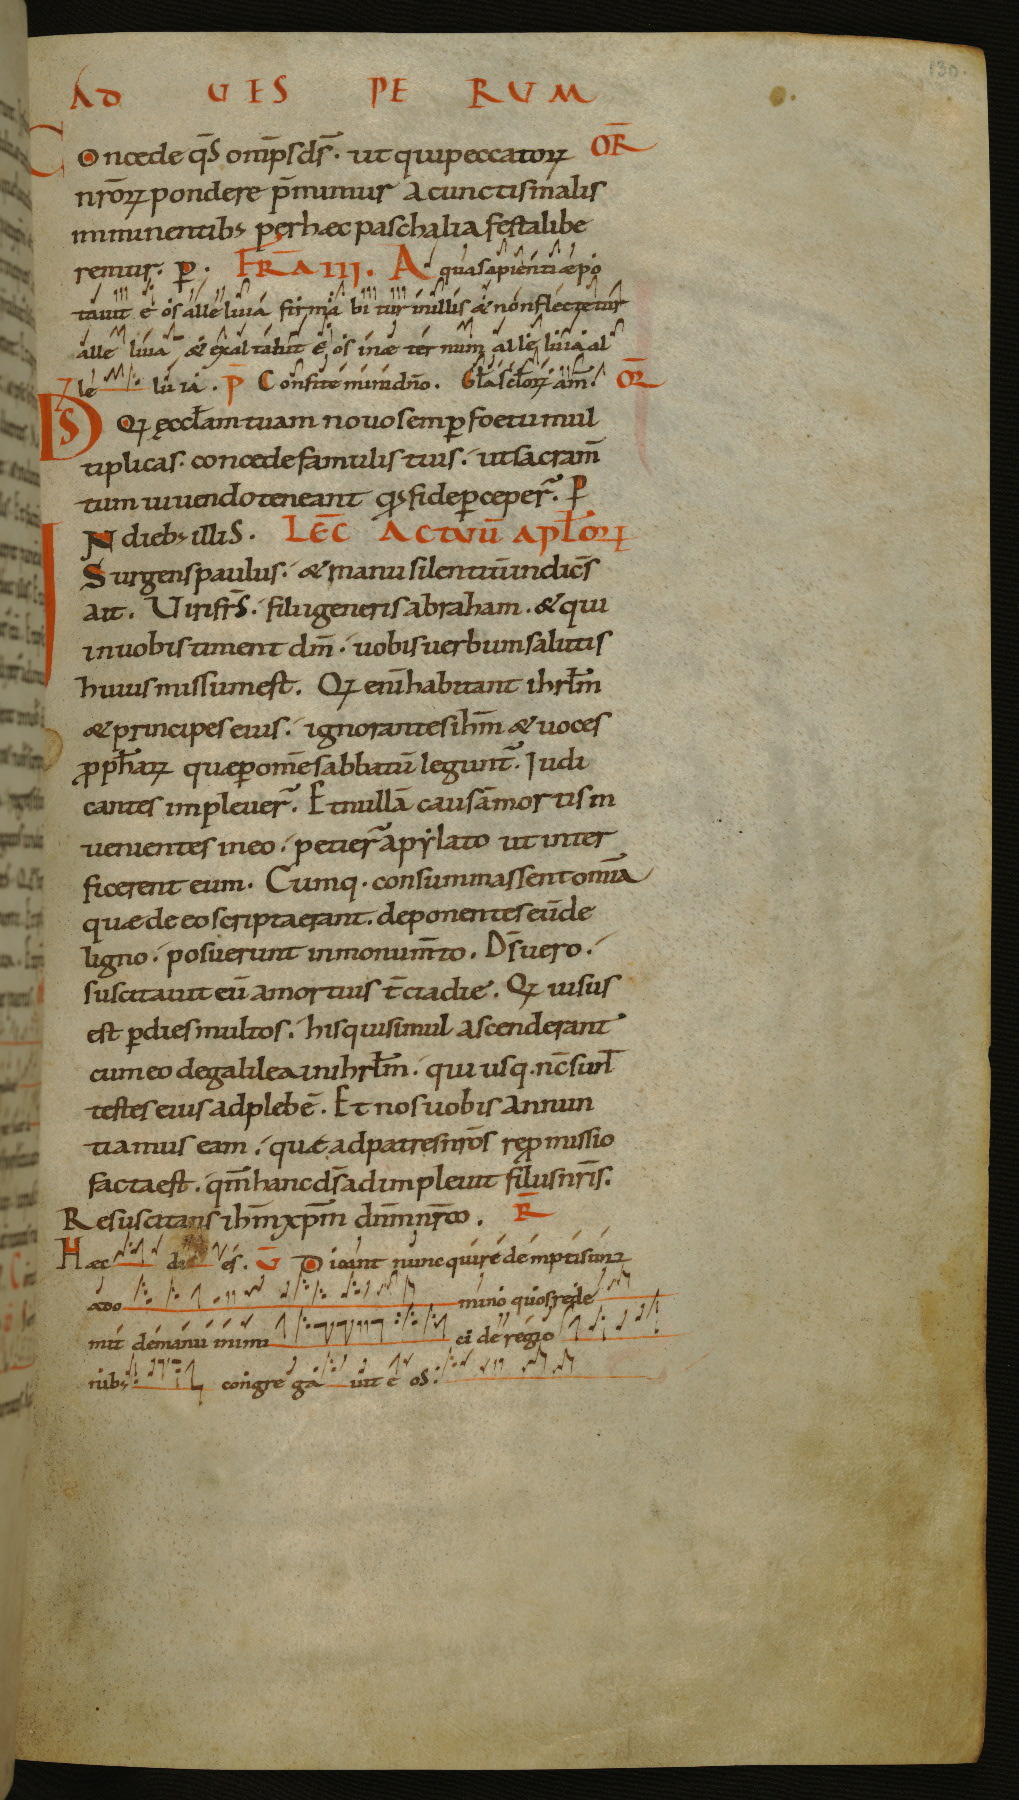 130.
AD UES PE RUM
Concede qs̄ omp̄s ds̄. ut qui peccatorꝝ OR̄
nrōꝝ pondere p̄mimur a cunctis malis
imminentibs per hæc paschalia festa libe
remur. ꝑ. FR̄A III. Aqua sapientiæ po
tauit eos alleluia firmabitur in illis & non flectetur
alleluia & exaltabit eos in æternum alleluia al
leluia. P̄ Confitemini dn̄o. Gl̄a sc̄lorꝝ am̄. OR̄
DS Qꝝ ęccl̄am tuam nouo semꝑ foetu mul
tiplicas. concede famulis tuis. ut sacram̄
tum uiuendo teneant qđ fide ꝑceper̄. P
IN diebs illis. LEC̄ ACTUŪ APL̄ORꝝ
Surgens paulus. & manu silentiū indic̄s
ait. Uiri fr̄s. filii generis abraham. & qui
in uobis timent dm̄. uobis uerbum salutis
huius missum est. Qꝝ enī habitant ihrl̄m
& principes eius. ignorantes ihm̄ & uoces
ꝓph̄arꝝ quæ ꝑ om̄e sabbatū legunt̄. Iudi
cantes impleuer̄. Et nullā causā mortis in
uenientes in eo. petier̄ a pylato ut inter
ficerent eum. Cumq. consummassent omīa
quæ de eo scripta erant. deponentes eū de
ligno. posuerunt in monum̄to. Ds̄ uero.
suscitauit eū a mortuis t̄cia die. Qꝝ uisus
est ꝑ dies multos. his qui simul ascenderant
cum eo de galilea in ihrl̄m. qui usq. nc̄ sunt
testes eius ad plebē. Et nos uobis annun
tiamus eam. quæ ad patres nrōs repmissio
facta est. qm̄ hanc ds̄ adimpleuit filiis nr̄is.
Resuscitans ihm̄ xpm̄ dnm̄ nrm̄. R̄
Hæc dies. V̄ Dicant nunc qui redempti sunt
a do mino quos rede
mit de manu inimi ci de regio
nibs congregauit eos.